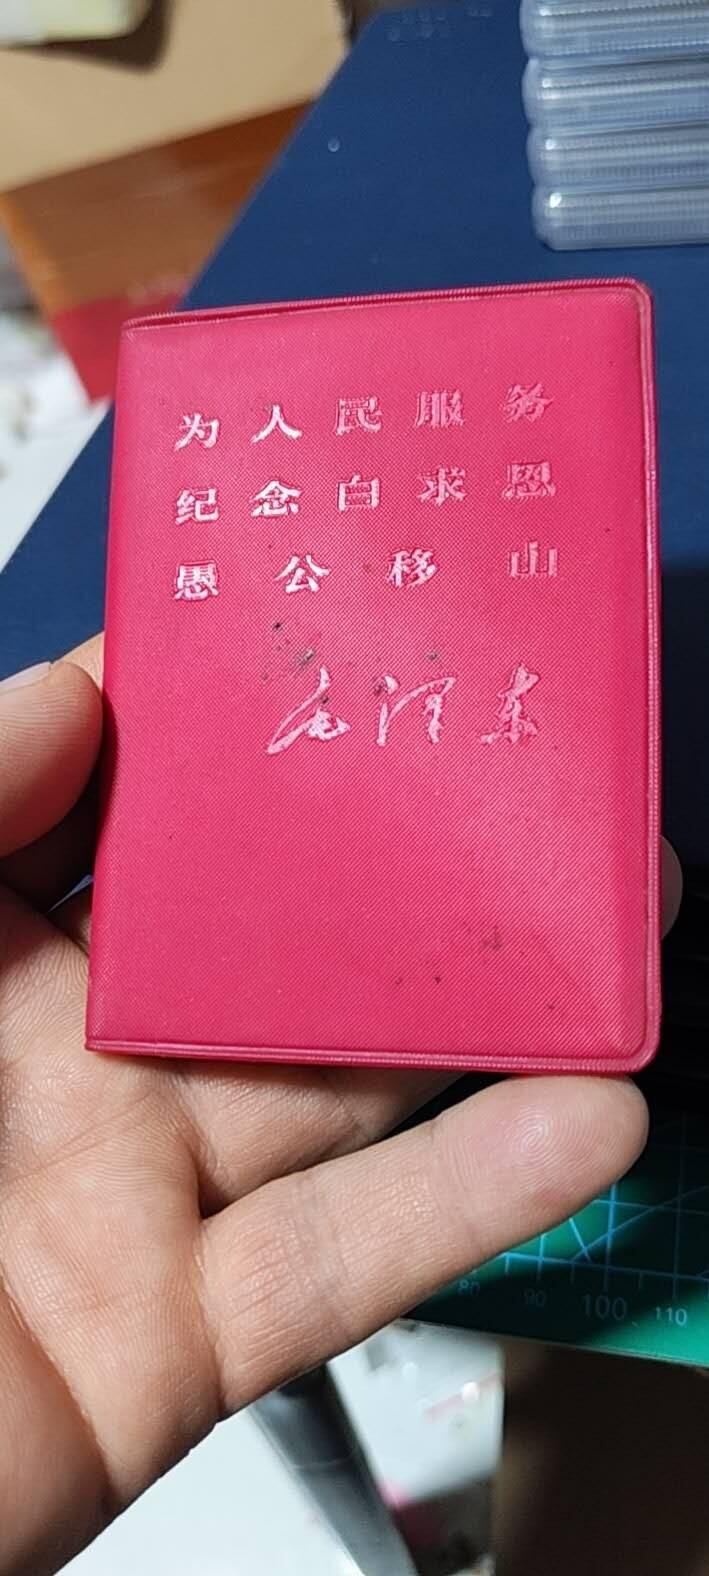 为人民服务
纪念白求恩
愚公移山
毛泽东
80 90 100 110